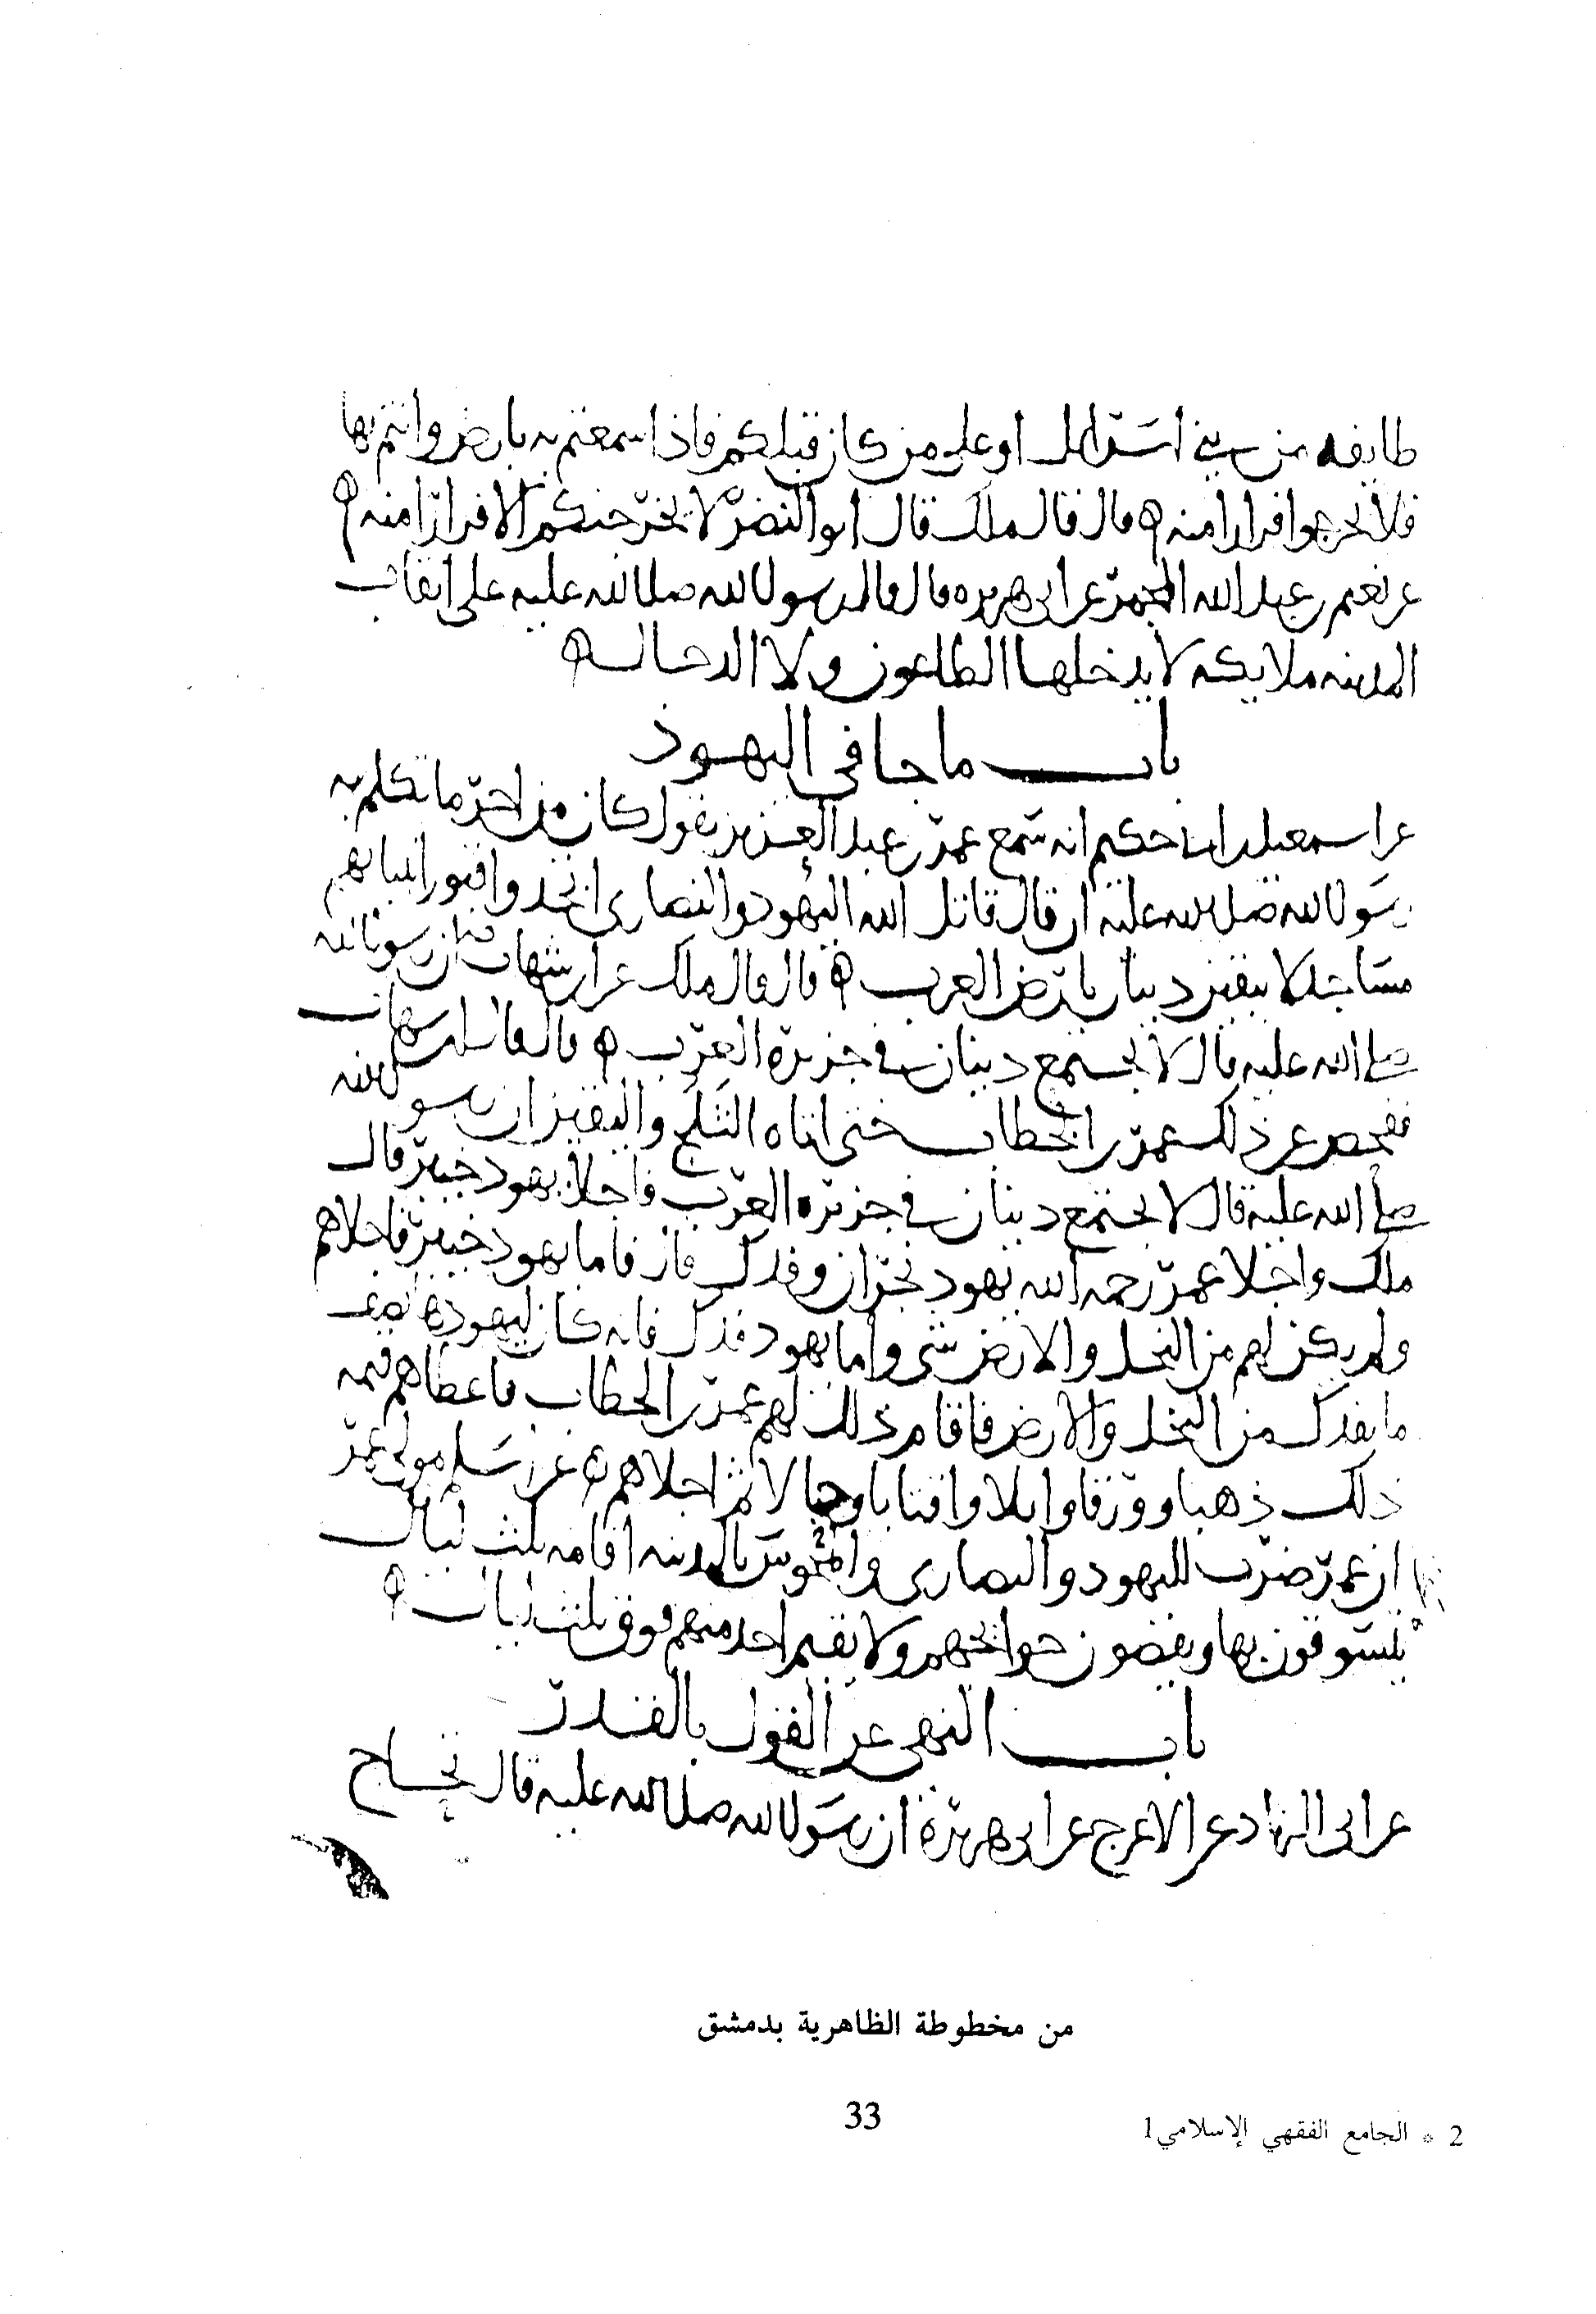 طايفه من بني اسرايل او على من كان قبلكم فاذا سمعتم به بارض وانتم بها
فلا تخرجوا فرارا منه ه قال قال ملك قال ابو النضر لا يخرجنكم الا فرارا منه ه
عن نعيم بن عبد الله المجمر عن ابي هريره قال قال رسول الله صلى الله عليه على انقاب
المدينه ملايكه لا يدخلها الطاعون ولا الدجال ه
باب ما جا في اليهود
عن اسمعيل ابن حكيم انه سمع عمر بن عبد العزيز يقول كان من اخر ما تكلم به
رسول الله صلى الله عليه ان قال قاتل الله اليهود والنصارى اتخذوا قبور انبيايهم
مساجد لا يبقين دينان بارض العرب ه قال قال ملك عن ابن شهاب ان رسول الله
صلى الله عليه قال لا يجتمع دينان في جزيره العرب ه قال قال ابن شهاب
ففحص عن ذلك عمر بن الخطاب حتى اتاه الثلج واليقين ان رسول الله
صلى الله عليه قال لا يجتمع دينان في جزيره العرب فاجلا يهود خيبر قال
ملك واجلا عمر رحمه الله يهود نجران وفدك فاما يهود خيبر فاجلاهم
ولم يكن لهم من النخل والارض شي واما يهود فدك فانه كان ليهودها نصف
ما بفدك من النخل والارض فاقام ذلك لهم عمر بن الخطاب فاعطاهم قيمه
ذلك ذهبا وورقا وابلا واقتابا وحبالا ثم اجلاهم ه عن اسلم مولى عمر
ان عمر ضرب لليهود والنصارى والمجوس بالمدينه اقامه ثلث ليال
يتسوقون بها ويقضون حوايجهم ولا يقيم احد منهم فوق ثلث ليال ه
باب النهي عن القول بالقدر
عن ابي الزناد عن الاعرج عن ابي هريرة ان رسول الله صلى الله عليه قال تحاج
من مخطوطة الظاهرية بدمشق
33
2 * الجامع الفقهي الإسلامي 1